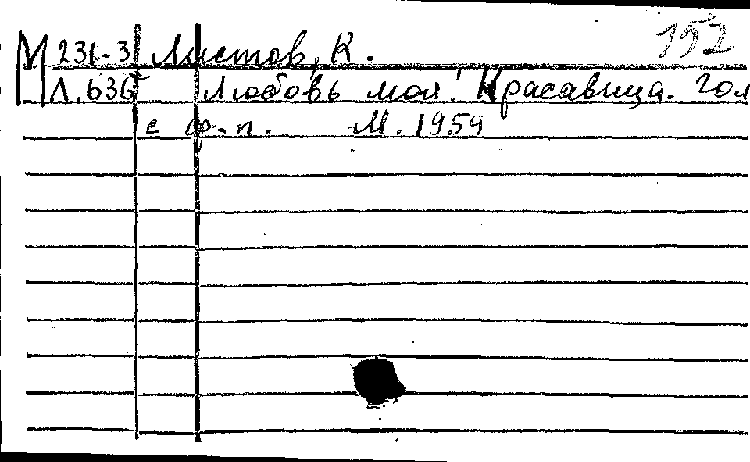 152
М 231-3 Листов, К.
Л.636 Любовь моя! Красавица. Гол
с ф.-п. М. 1954